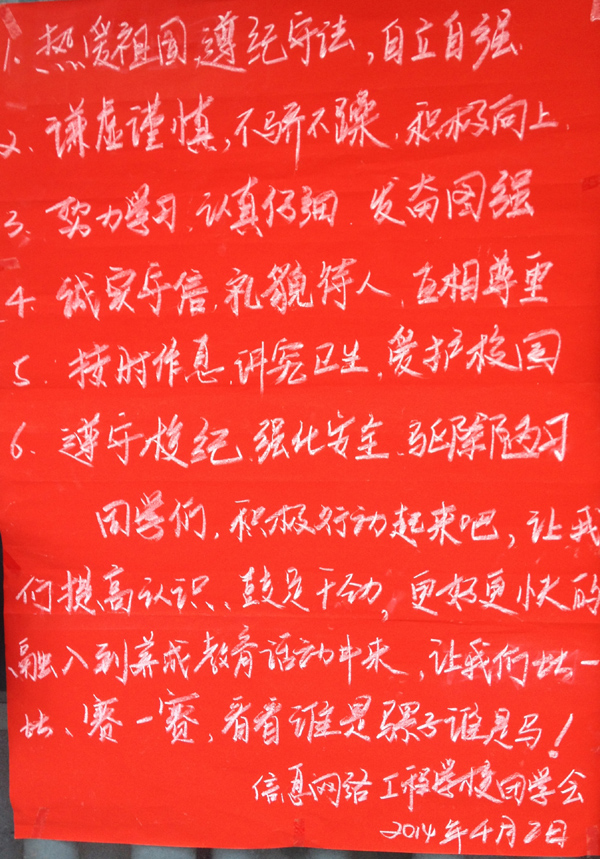 1. 热爱祖国,遵纪守法,自立自强.
2. 谦虚谨慎,不骄不躁,积极向上.
3. 努力学习,认真仔细 发奋图强
4. 诚实守信,礼貌待人,互相尊重
5. 按时作息,讲究卫生,爱护校园
6. 遵守校纪,强化安全,驱除陋习
同学们,积极行动起来吧,让我
们提高认识、鼓足干劲,更好更快的
融入到养成教育活动中来,让我们比一
比、赛一赛,看看谁是骡子谁是马!
信息网络工程学校团学会
2014年4月2日